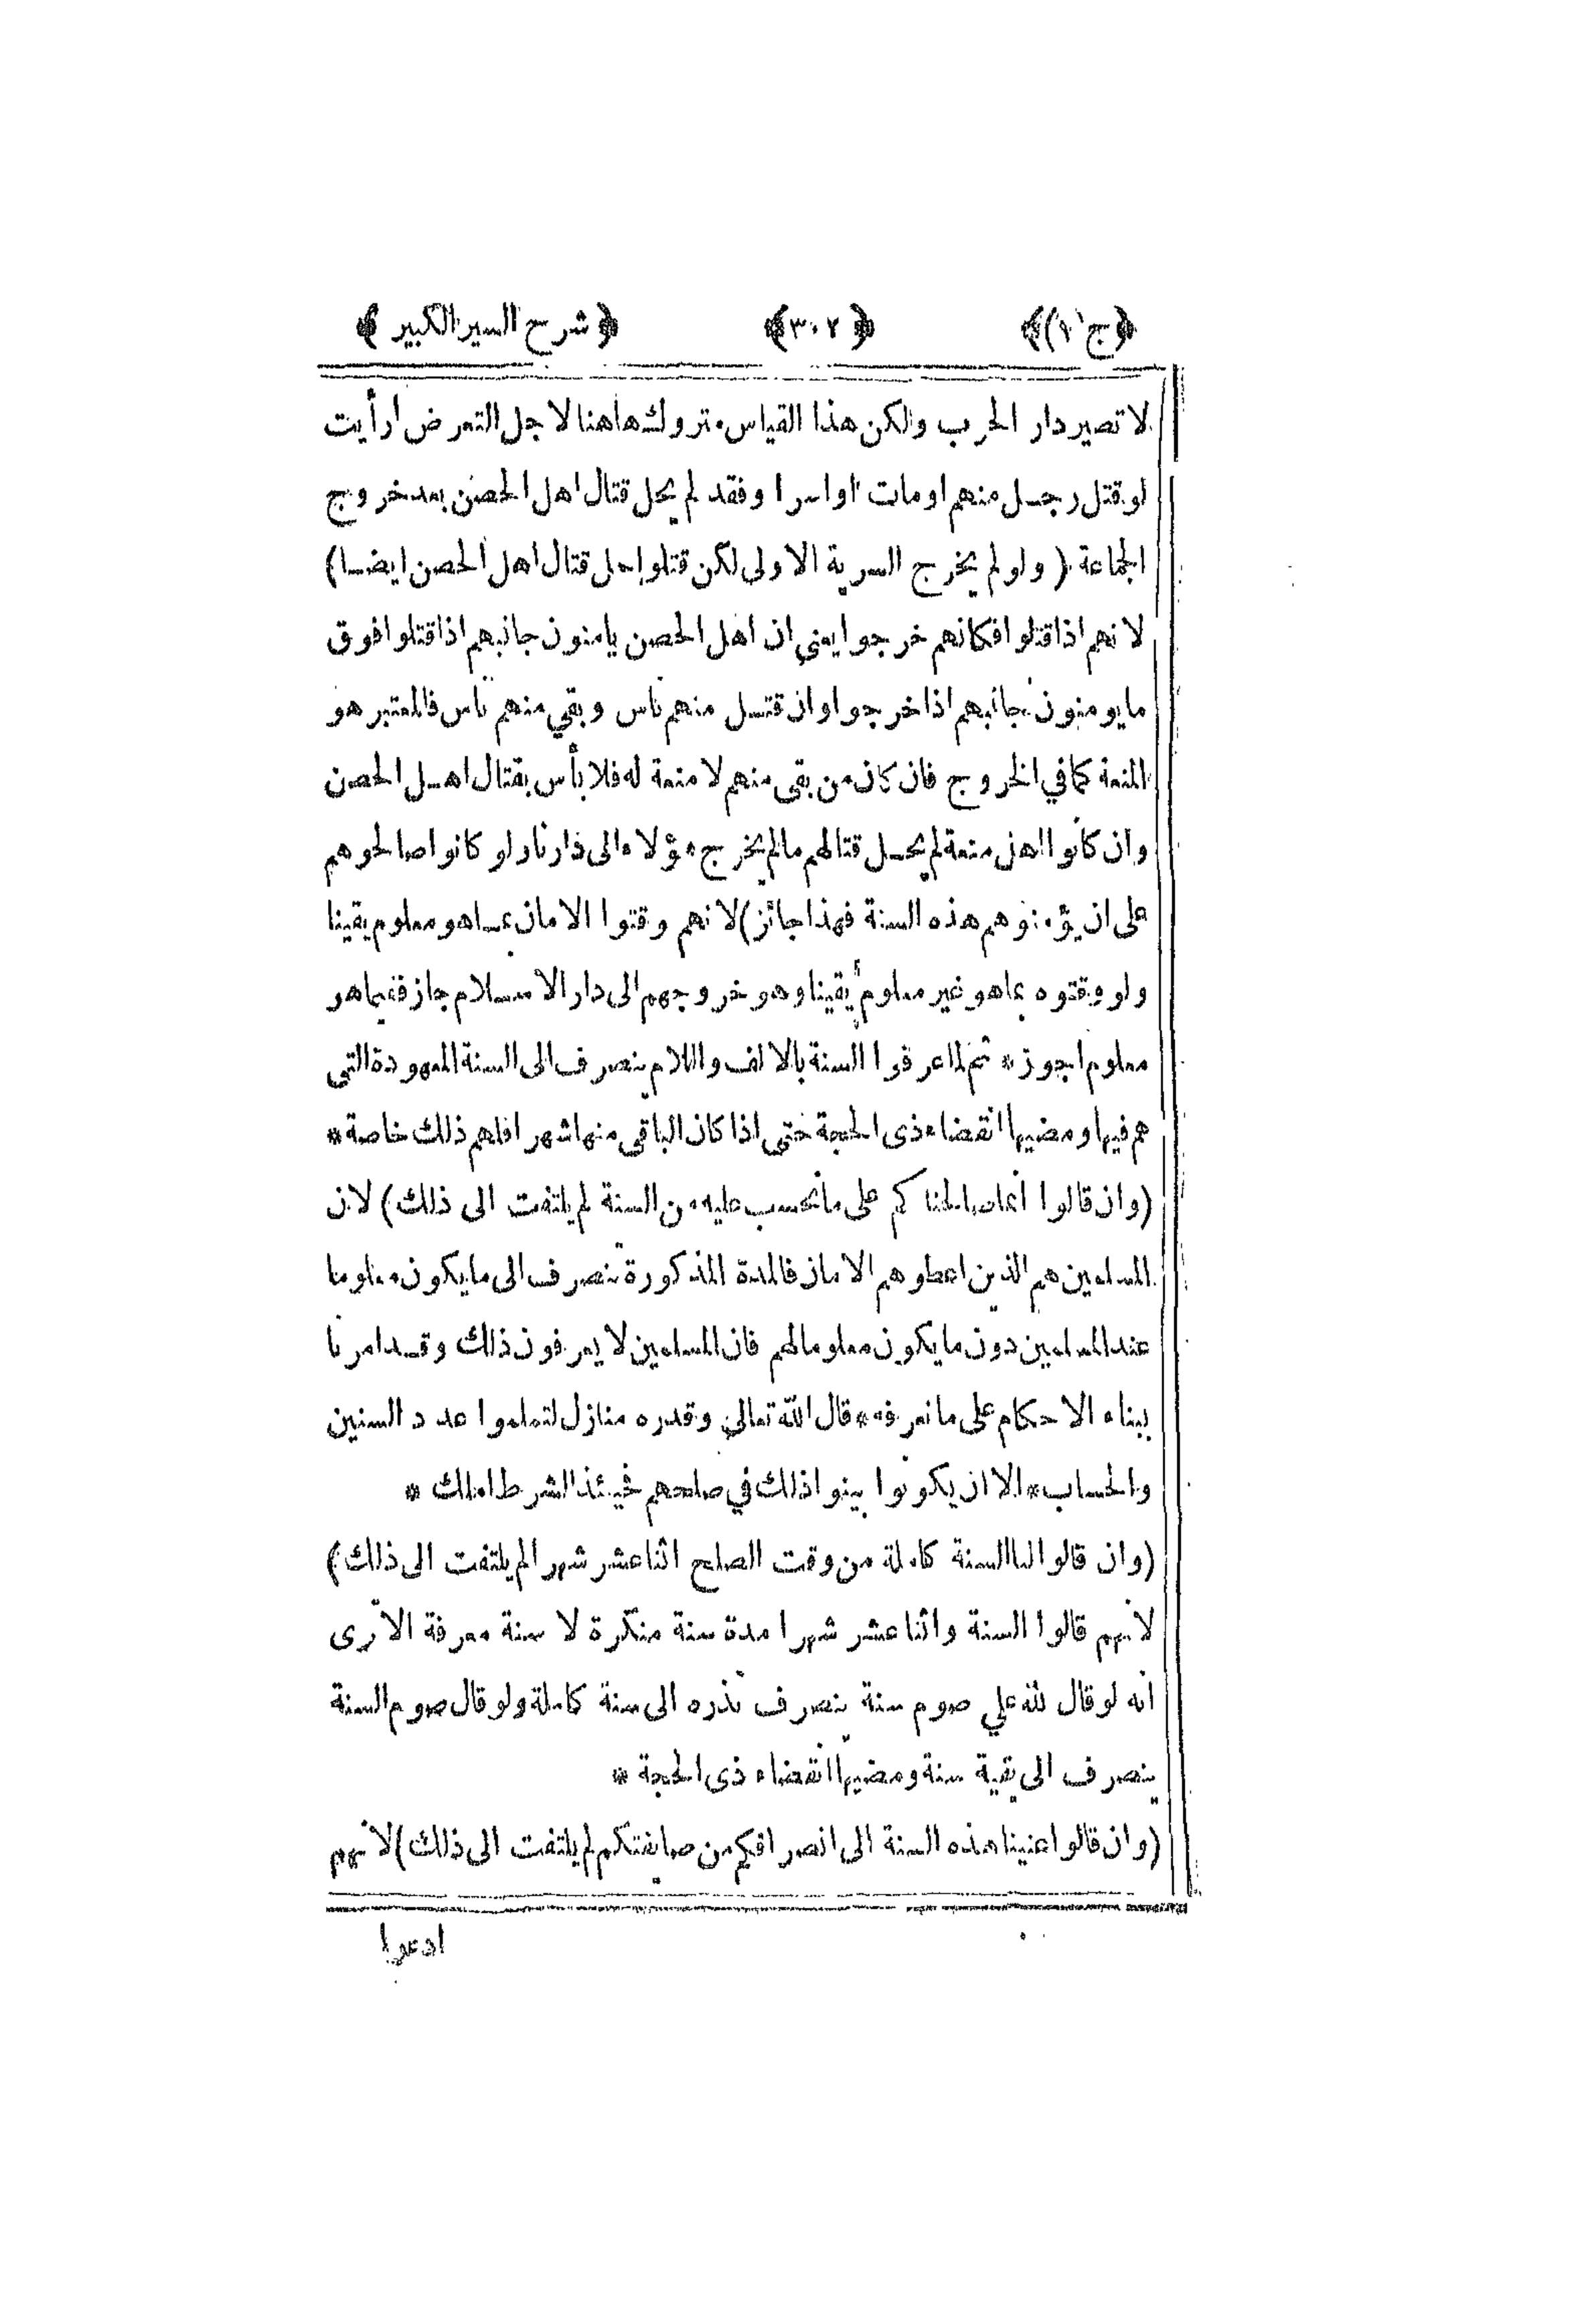 ﴿ج (١)﴾ ﴿٣٠٢﴾ ﴿شرح السير الكبير﴾
لا تصير دار الحرب ولكن هذا القياس متروك هاهنا لاجل التعرض أرأيت
لو قتل رجل منهم او مات او اسر او فقد لم يحل قتال اهل الحصن بعد خروج
الجماعة (ولو لم يخرج السرية الاولى لكن قتلوا حل قتال اهل الحصن ايضا)
لانهم اذا قتلوا فكانهم خرجوا يعني ان اهل الحصن يامنون جانبهم اذا قتلوا فوق
ما يومنون جانبهم اذا خرجوا وان قتل منهم ناس وبقي منهم ناس فالمعتبر هو
المنعة كما في الخروج فان كان من بقى منهم لا منعة له فلا بأس بقتال اهل الحصن
وان كانوا اهل منعة لم يحل قتالهم مالم يخرج هؤلاء الى دارنا ولو كانوا صالحوهم
على ان يؤمنوهم هذه السنة فهذا جائز) لانهم وقتوا الامان بما هو معلوم يقينا
ولو وقتوه بما هو غير معلوم يقينا وهو خروجهم الى دار الاسلام جاز ففيما هو
معلوم اجوز * ثم لما عرفوا السنة بالالف واللام ينصرف الى السنة المعهودة التي
هم فيها ومضيها انقضاء ذى الحجة حتى اذا كان الباقى منها شهر افلهم ذلك خاصة *
(وان قالوا انما صالحناكم على ما نحسب عليه من السنة لم يلتفت الى ذلك) لان
المسلمين هم الذين اعطوهم الامان فالمدة المذكورة تنصرف الى ما يكون معلوما
عند المسلمين دون ما يكون معلوما لهم فان المسلمين لا يعرفون ذلك وقد امرنا
ببناء الاحكام على ما نعرفه * قال الله تعالى وقدره منازل لتعلموا عدد السنين
والحساب * الا ان يكونوا بينوا ذلك في صلحهم فحينئذ الشرط املك *
(وان قالوا لنا السنة كاملة من وقت الصلح اثنا عشر شهرا لم يلتفت الى ذلك)
لانهم قالوا السنة واثنا عشر شهرا مدة سنة منكرة لا سنة معرفة الا ترى
انه لو قال لله علي صوم سنة ينصرف نذره الى سنة كاملة ولو قال صوم السنة
ينصرف الى بقية سنة ومضيها انقضاء ذى الحجة *
(وان قالوا عنينا هذه السنة الى انصرافكم من صايفتكم لم يلتفت الى ذلك) لانهم
ادعوا